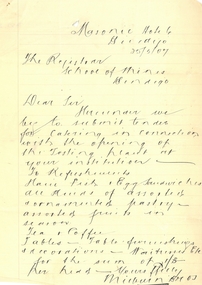 Masonic Hotel
Bendigo
The Registrar
School of Mines
Bendigo
Dear Sir
Hereunder we
beg to submit tender
for Catering in connection
with the opening of
the Testing plant at
your institution
To Refreshments
Ham, Pork & Egg Sandwiches
all kinds of assorted
ornamented pastry
assorted fruits in
season
Tea & Coffee
Tables - Table furnishings
decorations - Waitress etc
for the sum
per head - Yours